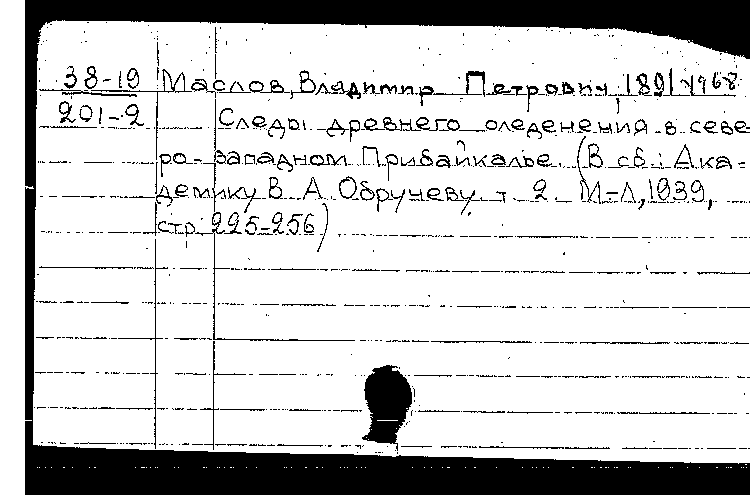 38-19 Маслов, Владимир Петрович, 1891-1968
201-2 Следы древнего оледенения в севе-
ро-западном Прибайкалье. (В сб.: Ака-
демику В. А. Обручеву. т. 2. М-Л, 1939,
стр. 225-256).